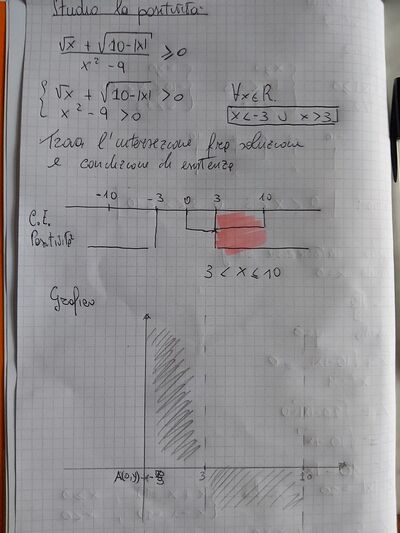 Studio la positività.
√x + √10-|x| / x² - 9 ≥ 0
{ √x + √10-|x| > 0 ∀x∈R.
x² - 9 > 0 x < -3 ∪ x > 3
Trovo l'intersezione fra soluzioni
e condizioni di esistenza
-10 -3 0 3 10
C.E.
Positività
3 < x ≤ 10
Grafico
A(0,y) 3 10